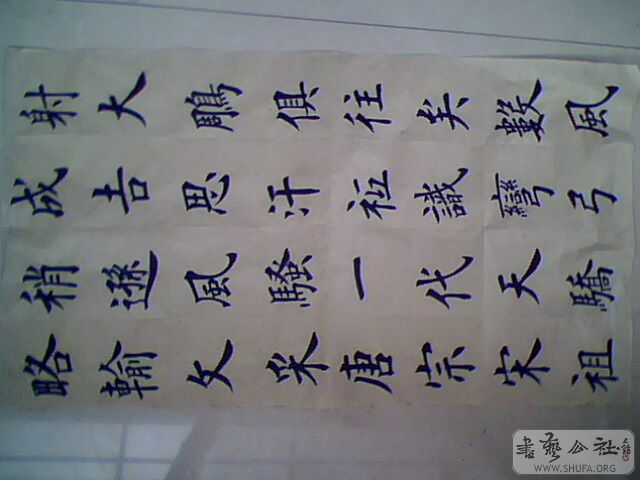 略輸文采唐宗宋祖
稍遜風騷一代天驕
成吉思汗祗識彎弓
射大鵰俱往矣數風
書藝公社
WWW.SHUFA.ORG